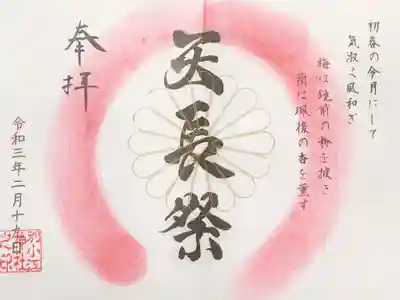 初春の令月にして
気淑く風和ぎ
梅は鏡前の粉を披き
蘭は珮後の香を薫す
天長祭
奉拝
令和三年二月十九日
別小江
神社
之印